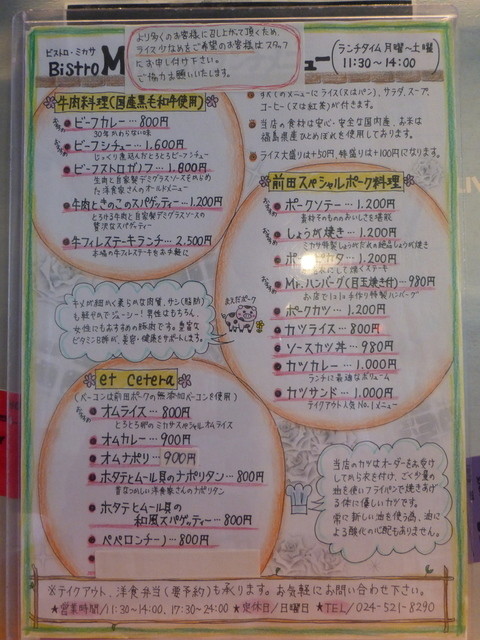 より多くのお客様に召し上がて頂くため、
ライス少なめをご希望のお客様はスタッフ
にお申し付け下さい。
ご協力お願いいたします。
ビストロ・ミカサ
BISTRO M
ュー
(ランチタイム月曜～土曜
11:30～14:00)
牛肉料理(国産黒毛和牛使用)
ビーフカレー…800円
30年かわらない味
ビーフシチュー…1,600円
じっくり煮込んだとろとろビーフシチュー
ビーフストロガノフ…1,800円
生肉と自家製デミグラスソースをからめ
た洋食家さんのオールドメニュー
牛肉ときのこのスパゲティー…1,200円
とろける牛肉と自家製デミグラスソースの
贅沢なスパゲッティー
牛フィレステーキランチ…2,500円
本場の牛フィレステーキをお手軽に
すべてのメニューにライス(又はパン)、サラダ、スープ、
コーヒー(又は紅茶)が付きます。
当店の食材は安心・安全な国内産、お米は
福島県産ひとめぼれを使用しております。
ライス大盛りは+50円、特盛りは+100円になります。
前田スペシャルポーク料理
ポークソテー…1,200円
素材そのもののおいしさを堪能
しょうが焼き…1,200円
ミカサ特製しょうがだれの絶品しょうが焼き
カタ…1,200円
にして焼くステーキ
Mr.ハンバーグ(目玉焼き付)…980円
お店で1コ1コ手作り特製ハンバーグ
ポークカツ…1,200円
カツライス…800円
ソースカツ丼…980円
カツカレー…1,000円
ランチに最適なボリューム
カツサンド…1,000円
テイクアウト人気No.1メニュー
キメが細かく柔らかな肉質、サシ(脂肪)
も軽やかでジューシー!男性はもちろん、
女性にもおすすめの豚肉です。豊富な
ビタミンB群が、美容・健康をサポートします。
まえだポーク
et cetera
(ベーコンは前田ポークの無添加ベーコンを使用)
オムライス…800円
とろとろ卵のミカサスペシャルオムライス
オムカレー…900円
オムナポリ…900円
ホタテとムール貝のナポリタン…800円
昔なつかしい洋食家さんのナポリタン
ホタテとムール貝の
和風スパゲッティー…800円
ペペロンチーノ…800円
当店のカツはオーダーをお受け
してから衣を付け、ごく少量の
油を使いフライパンで焼きあげ
る体に優しいカツです。
常に新しい油を使う為、油に
よる酸化の心配もありません。
※テイクアウト、洋食弁当(要予約)も承ります。お気軽にお問い合わせ下さい。
★営業時間/11:30～14:00、17:30～24:00 ★定休日/日曜日 ★TEL/024-521-8290